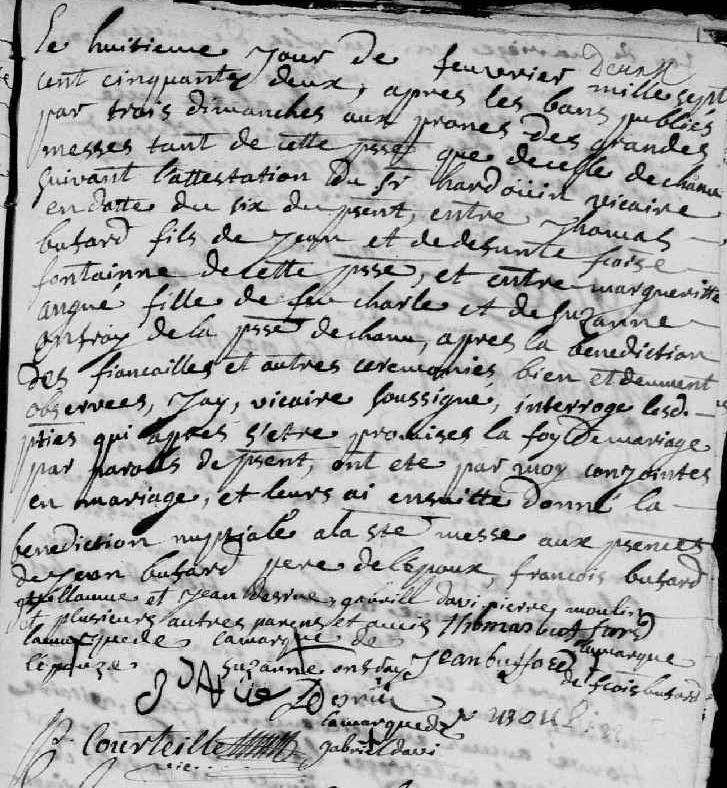 Le huitieme Jour de feuvrier mille sept
cent cinquante deux, apres les bans publiés
par trois dimanches aux prones des grandes
messes tant de cette psse que de celle de chanu
suivant l'attestation du Sr hardoüin vicaire
en datte du six du psent, entre Thomas
busard fils de Jean et de defunte fcoise
fontainne de cette psse, et entre margueritte
angué fille de feu charle et de Suzanne
onfray de la psse de chanu, apres la benediction
des fiancailles et autres ceremonies bien et deument
observees, Jay, vicaire soussigné, interrogé lesd.
pties qui apres s'etre promises la foy de mariage
par parolles de psent, ont eté par moy conjointes
en mariage, et leurs ai ensuitte donné la
benediction nuptiale a la ste messe aux psences
de Jean busard pere de l'epoux, francois busard
guillaume et Jean desrue, gabriel davi pierre moulin
et plusieurs autres parens et amis Thomas
la marque de la marque de la marque
l'epouze Suzanne onfray Jean de fcois busard
la marque de
gabriel davi
Courteille
vic.